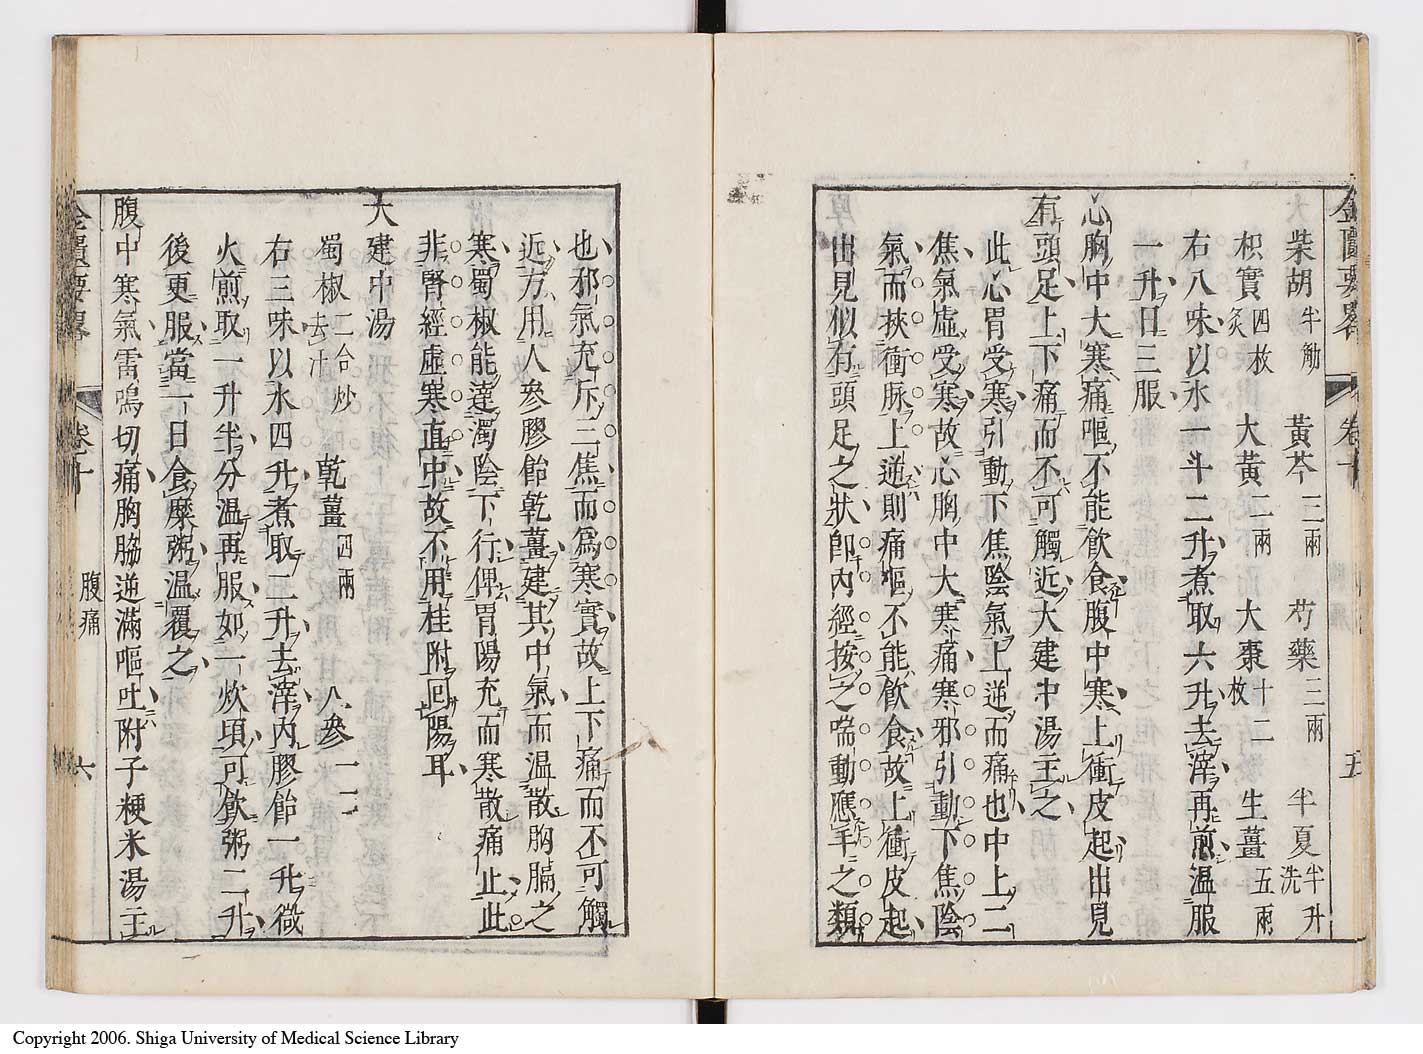 金匱要略 卷十 五
柴胡半觔 黃芩三兩 芍藥三兩 半夏半升洗
枳實四枚炙 大黃二兩 大棗十二枚 生薑五兩
右八味以水一斗二升煮取六升去滓再煎温服
一升日三服
心胸中大寒痛嘔不能飲食腹中寒上衝皮起出見
有頭足上下痛而不可觸近大建中湯主之
此心胃受寒引動下焦陰氣上逆而痛也中上二
焦氣虛受寒故心胸中大寒痛寒邪引動下焦陰
氣而挾衝脉上逆則痛嘔不能飲食故上衝皮起
出見似有頭足之狀卽內經按之喘動應手之類
也邪氣充斥三焦而爲寒實故上下痛而不可觸
近方用人參膠飴乾薑建其中氣而温散胸膈之
寒蜀椒能達濁陰下行俾胃陽充而寒散痛止此
非腎經虛寒直中故不用桂附回陽耳
大建中湯
蜀椒二合炒去汁 乾薑四兩 人參一二
右三味以水四升煮取二升去滓內膠飴一升微
火煎取一升半分温再服如一炊頃可飲粥二升
後更服當一日食糜粥温覆之
腹中寒氣雷鳴切痛胸脇逆滿嘔吐附子粳米湯主
金匱要略 卷十 腹痛 六
Copyright 2006. Shiga University of Medical Science Library